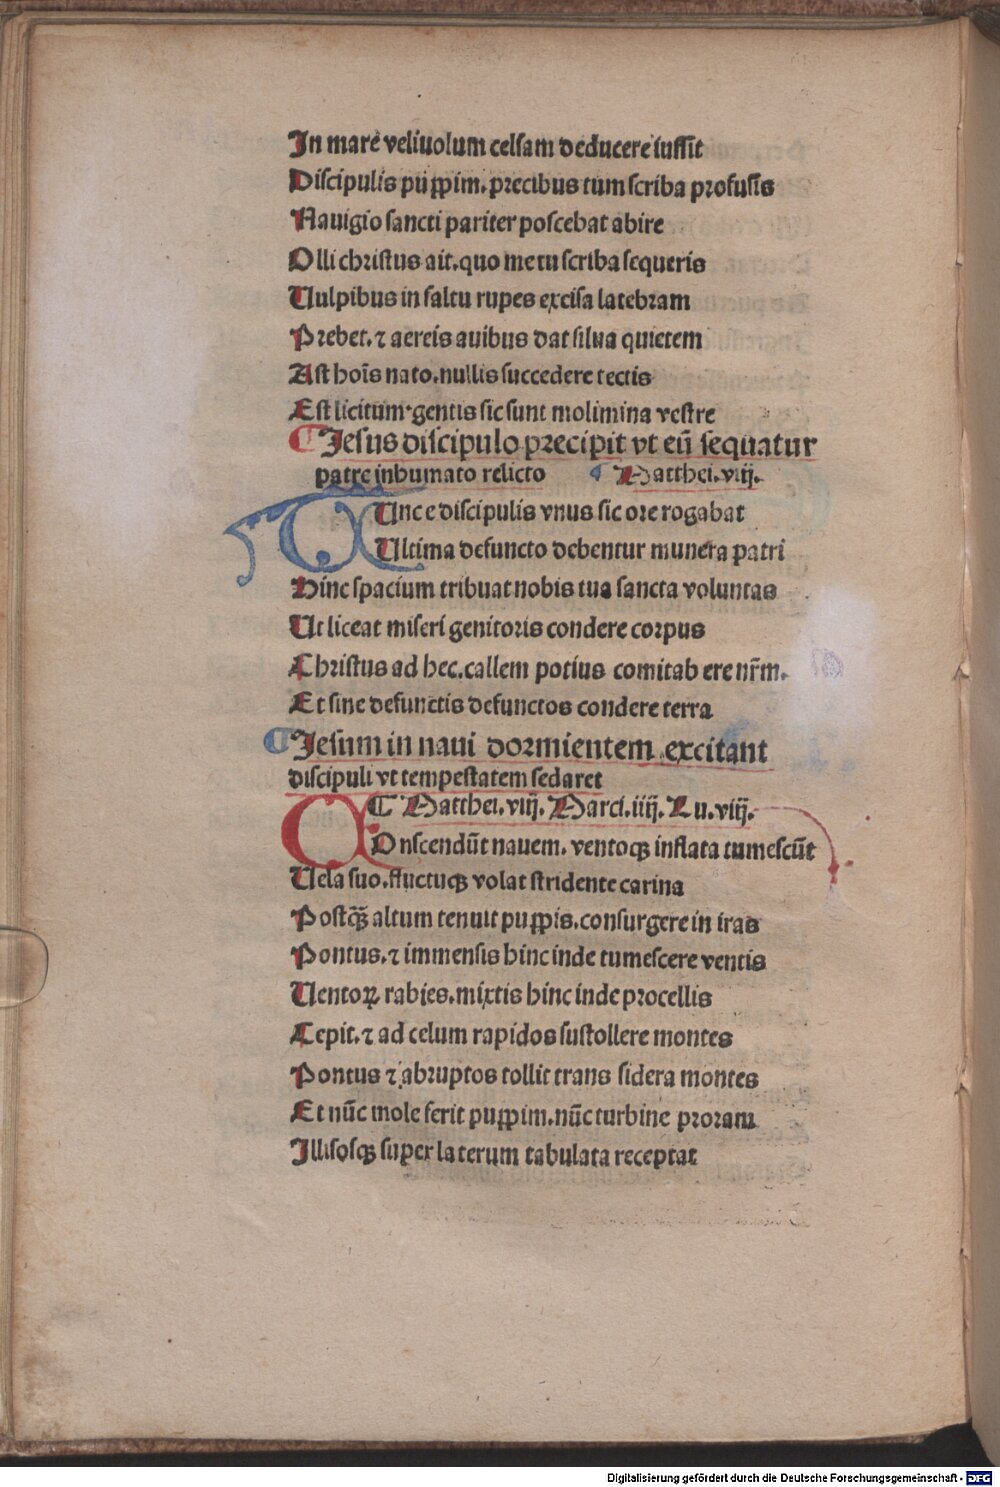 In mare velivolum celsam deducere iussit
Discipulis puppim. precibus tum scriba profusis
Nauigio sancti pariter poscebat abire
Olli christus ait. quo me tu scriba sequeris
Uulpibus in saltu rupes excisa latebram
Prebet. ⁊ aereis auibus dat silua quietem
Ast hoīs nato. nullis succedere tectis
Est licitum. gentis sic sunt molimina vestre
¶ Jesus discipulo precipit vt eū sequatur
patre inhumato relicto ¶ Matthei. viij.
TUnc e discipulis vnus sic ore rogabat
Ultima defuncto debentur munera patri
Hinc spacium tribuat nobis tua sancta voluntas
Ut liceat miseri genitoris condere corpus
Christus ad hec. callem potius comitab ere nr̄m.
Et sine defunctis defunctos condere terra
¶ Jesum in naui dormientem excitant
discipuli vt tempestatem sedaret
¶ Matthei. viij. Marci. iiij. Lu. viij.
COnscendūt nauem. ventoqꝫ inflata tumescūt
Uela suo. fluctuqꝫ volat stridente carina
Postq̄ꝫ altum tenuit puppis. consurgere in iras
Pontus. ⁊ immensis hinc inde tumescere ventis
Uentoꝝ rabies. mixtis hinc inde procellis
Cepit. ⁊ ad celum rapidos sustollere montes
Pontus ⁊ abruptos tollit trans sidera montes
Et nūc mole ferit puppim. nūc turbine proram
Illisosqꝫ super laterum tabulata receptat
Digitalisierung gefördert durch die Deutsche Forschungsgemeinschaft - DFG